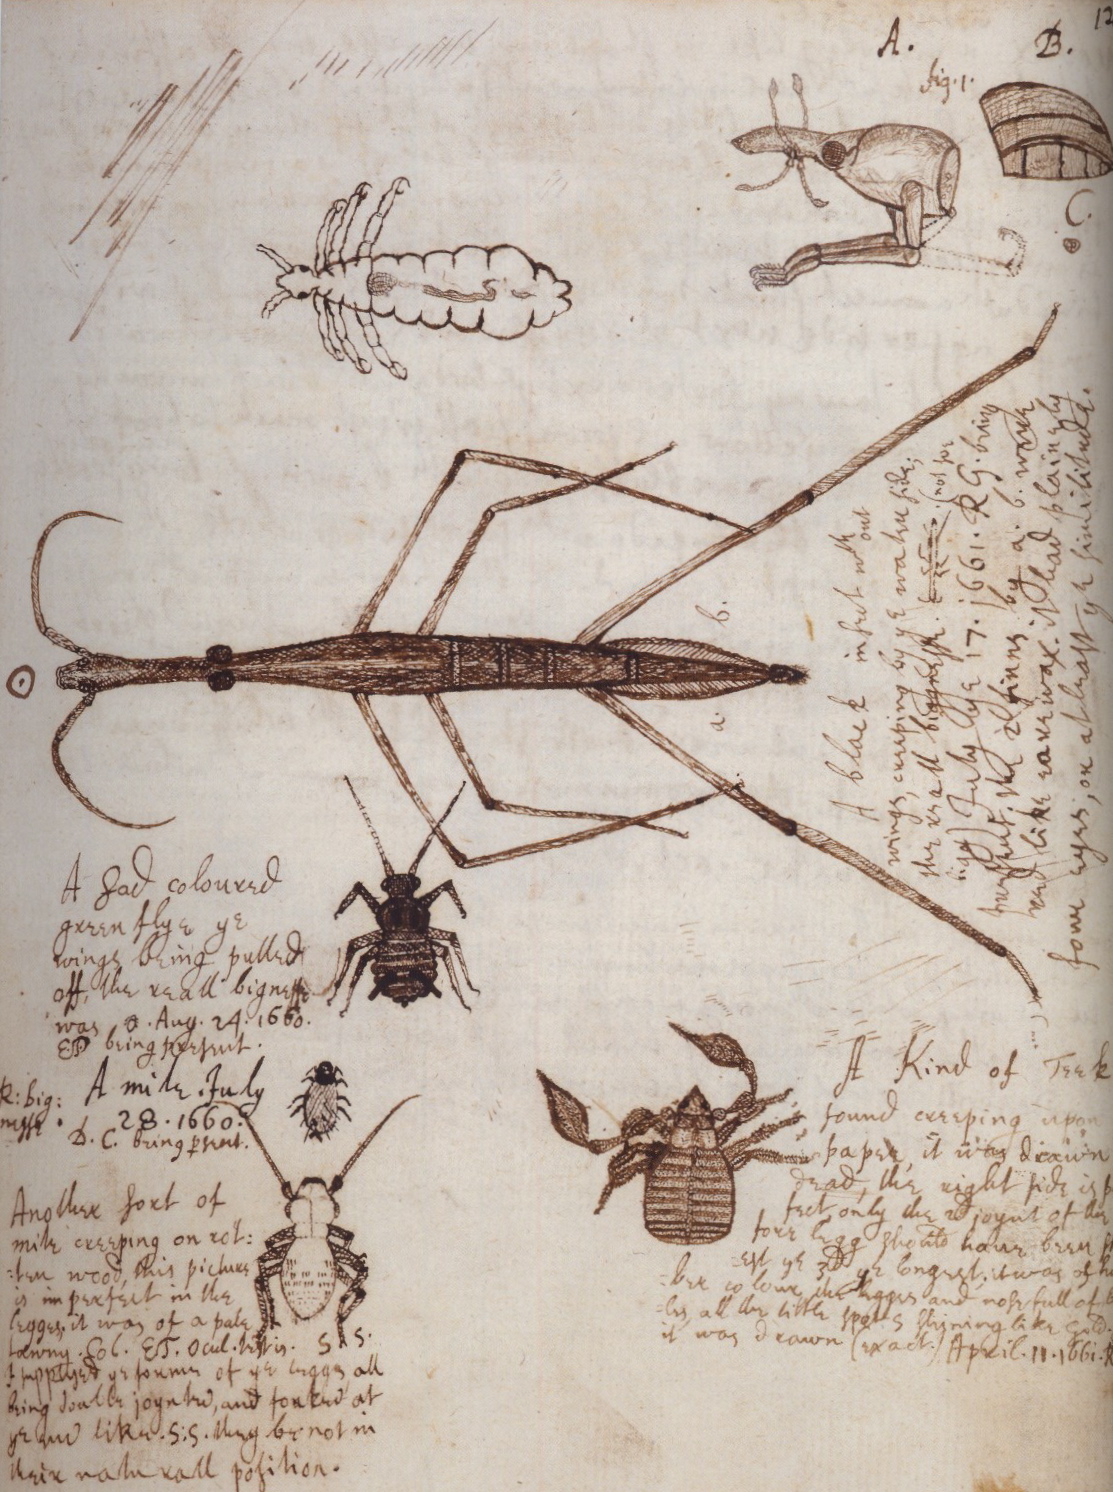 12
A.
B.
fig. 1.
C.
b.
a.
A black insect with out
wings, creeping by ye water side;
the reall bignesse. (not so
big) July ye 17. 1661. R G. being
present. the 2 finns by a. b. were
red like sarewax. it had plainely
foure eyes, or at least ye similitude.
A sad coloured
green flye ye
wings being pulled
off, the reall bignesse
was . Aug. 24. 1660.
ED being present.
R: big:
nesse .
A mite. July
28. 1660.
D. C. being psent.
Another sort of
mite creeping on rot:
=ten wood, this picture
is imperfect in the
legges, it was of a pale
tawny. Col. ET. Ocul. testis. S S.
I supplyed ye forme of ye legges all
being double joynted, and forked at
ye end like .S:S. they be not in
their naturall position.
A Kind of Teek
found creeping upon
paper, it was drawn
dead, the right side is
fect, only the 2d joynt of the
fore legg should have been
est ye 3d ye longest. it was of
ber colour, the legges and nose full of
les, all the little spots shining like gold.
it was drawn (exact.) April. 11. 1661. R